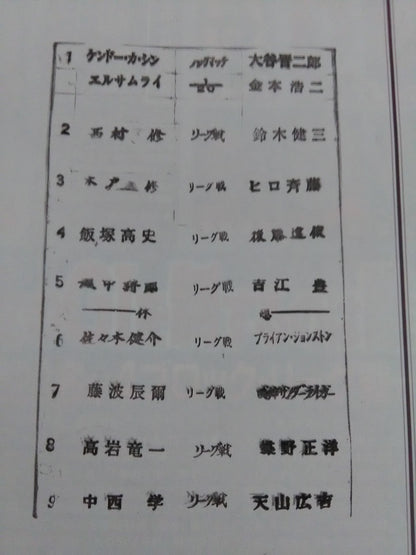 1 ケンドー・カ・シン ハンディキャップ 大谷晋二郎
エルサムライ 金本浩二
2 西村修 リーグ戦 鈴木健三
3 木戸修 リーグ戦 ヒロ斉藤
4 飯塚高史 リーグ戦 後藤達俊
5 越中詩郎 リーグ戦 吉江豊
休憩
6 佐々木健介 リーグ戦 ブライアン・ジョンストン
7 藤波辰爾 リーグ戦 サンダーライガー
8 高岩竜一 リーグ戦 蝶野正洋
9 中西学 リーグ戦 天山広吉